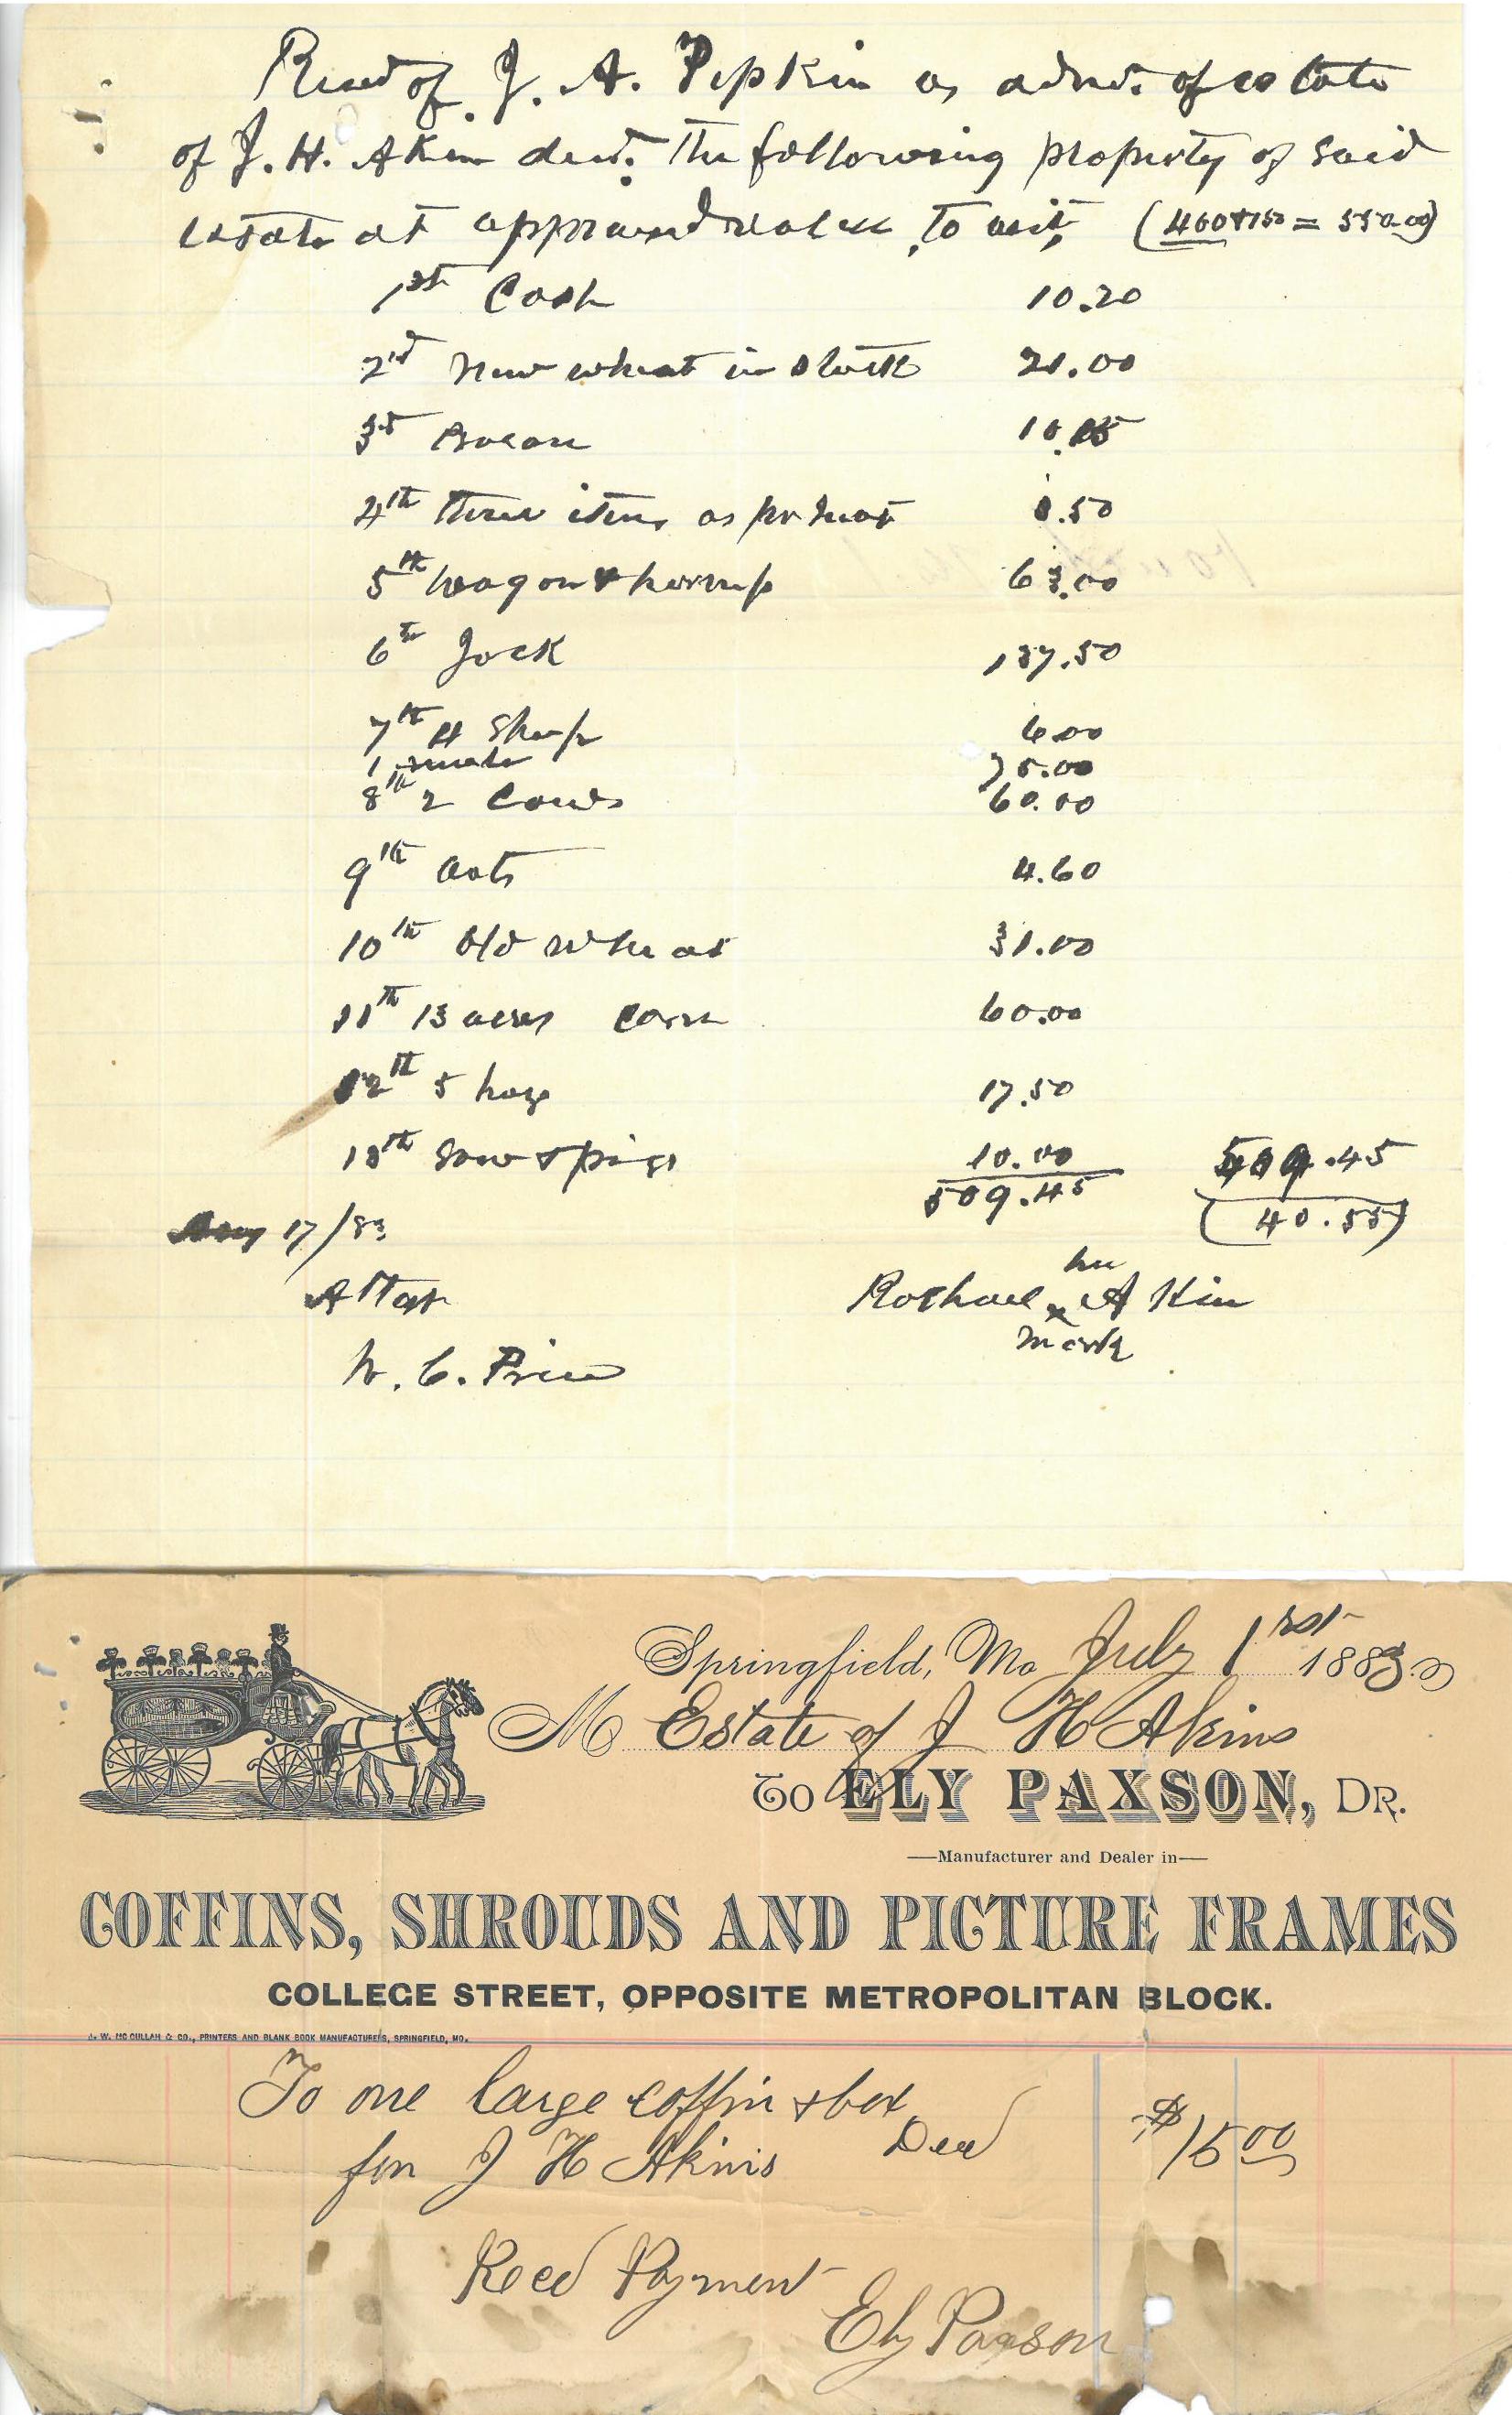 Recd of J. A. Pipkin as admr. of estate
of J. H. Akin decd. the following property of said
estate at appraised values, to wit, (400+150 = 550.00)
1st Cash 10.20
2nd New wheat in stack 21.00
3rd Bacon
4th three items as pr 3.50
5th Wagon & harness 63.00
6th Jack 137.50
7th 4 Sheep 6.00
1 mule 75.00
8th 2 Cows 60.00
9th Oats 4.60
10th Old wheat 31.00
11th 13 acres Corn 60.00
12th 5 hogs 17.50
13th Sow & pigs 10.00 509.45
509.45 (40.55)
Aug 17/83
Attest her
Rachael x Akin
mark
W. C. Price
Springfield, Mo July 1rst 1883
M Estate of J H Akins
To ELY PAXSON, DR.
Manufacturer and Dealer in
COFFINS, SHROUDS AND PICTURE FRAMES
COLLEGE STREET, OPPOSITE METROPOLITAN BLOCK.
J. W. MC CULLAH & CO., PRINTERS AND BLANK BOOK MANUFACTURERS, SPRINGFIELD, MO.
To one large coffin & box
for J H Akins Decd $15.00
Recd Payment
Ely Paxson